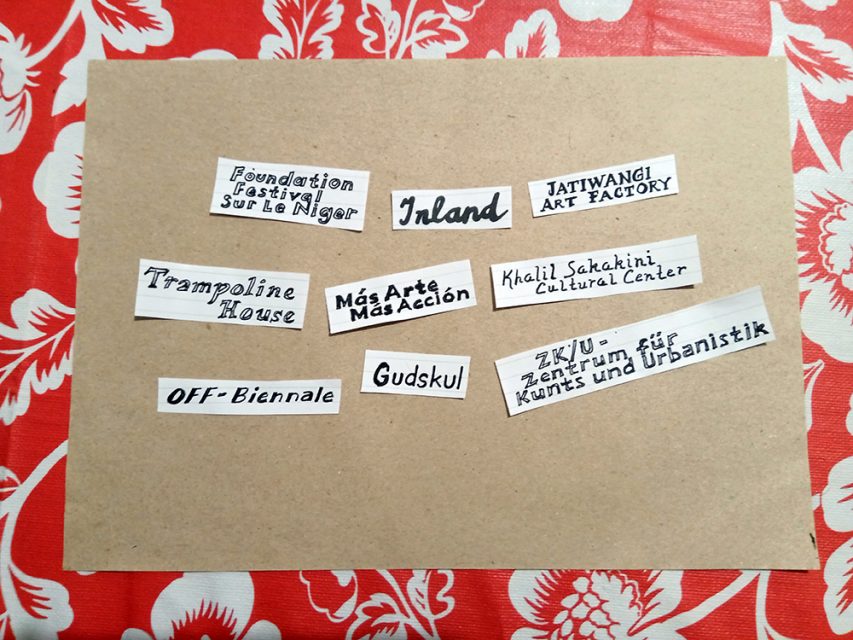 Foundation
Festival
Sur Le Niger
Inland
JATIWANGI
ART FACTORY
Trampoline
House
Más Arte
Más Acción
Khalil Sakakini
Cultural Center
OFF-Biennale
Gudskul
ZK/U -
Zentrum für
Kunts und Urbanistik